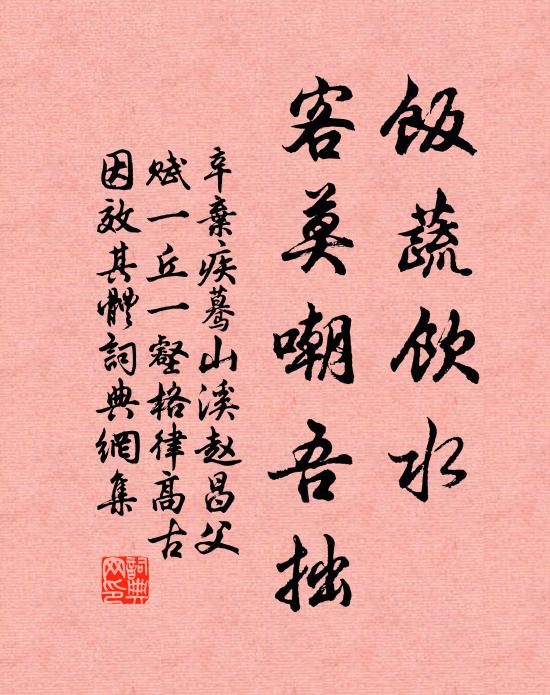 飯蔬飲水
客莫嘲吾拙
辛棄疾驀山溪赵昌父
赋一丘一壑格律高古
因效其體詞典網集
詞典网印